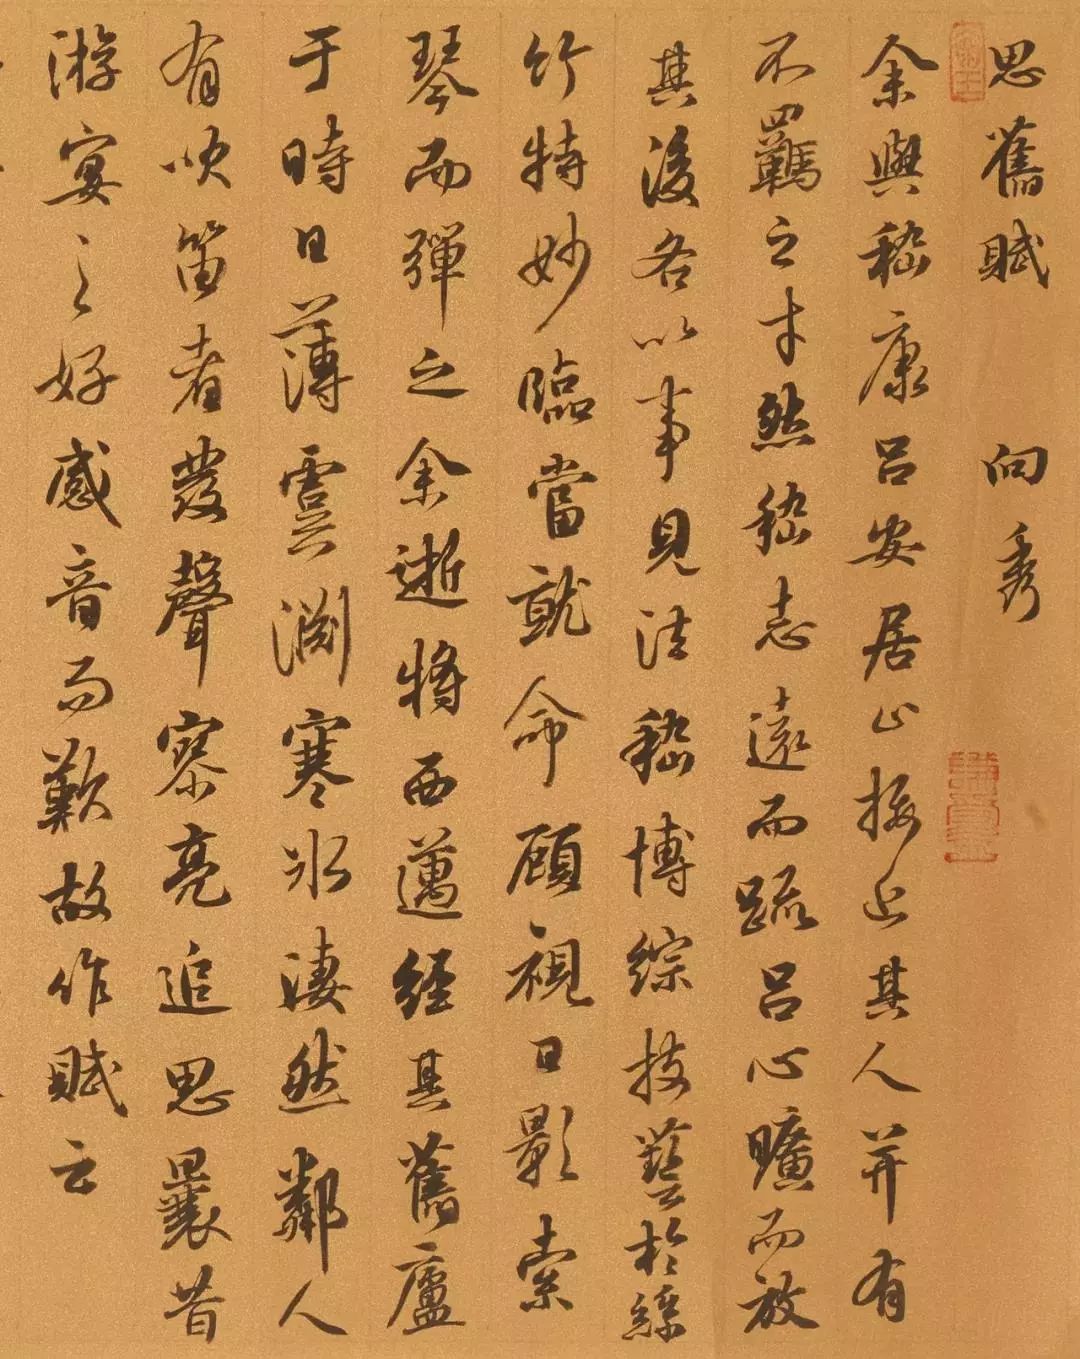 思舊賦 向秀
余與嵇康呂安居止接近其人并有
不羈之才然嵇志遠而疏呂心曠而放
其後各以事見法嵇博綜技藝於絲
竹特妙臨當就命顧視日影索
琴而彈之余逝將西邁經其舊廬
于時日薄虞淵寒冰淒然鄰人
有吹笛者發聲寥亮追思曩昔
游宴之好感音而歎故作賦云